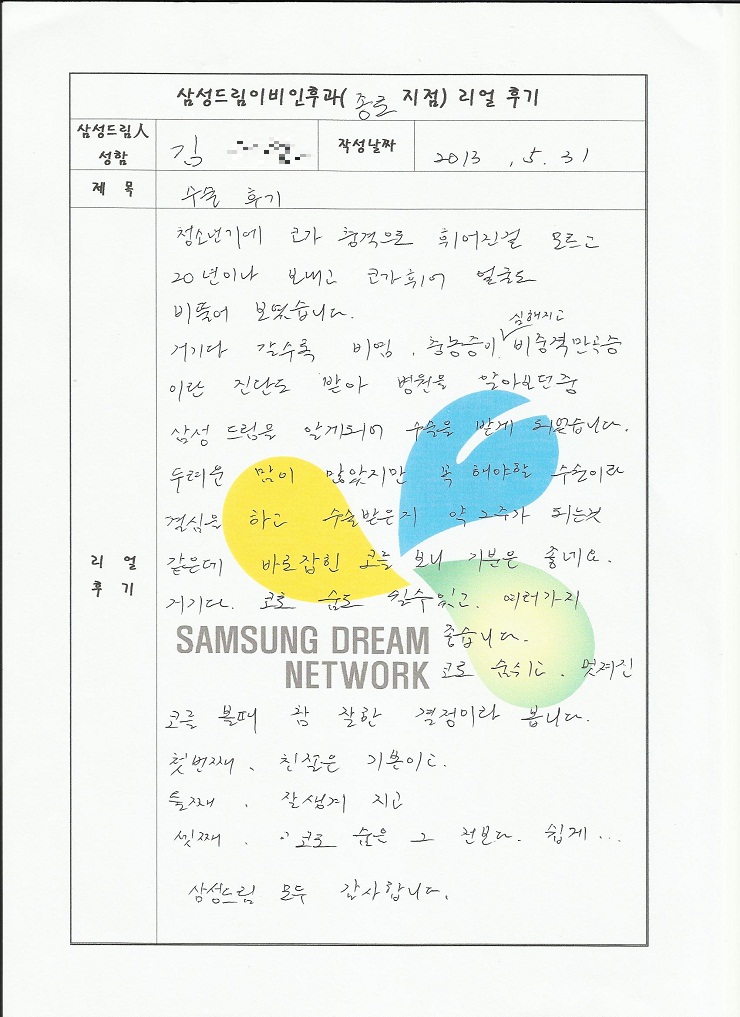 삼성드림이비인후과( 종로 지점) 리얼 후기
삼성드림人 성함
김
작성날짜
2013 . 5. 31
제 목
수술 후기
리 얼
후 기
청소년기에 코가 충격으로 휘어진걸 모르고
20년이나 보내고 코가 휘어 얼굴도
비뚤어 보였습니다.
거기다 갈수록 비염, 축농증이 심해지고 비중격만곡증
이란 진단도 받아 병원을 알아보던중
삼성 드림을 알게되어 수술을 받게 되었습니다.
두려운 맘이 많았지만 꼭 해야할 수술이라
결심을 하고 수술받은지 약 2주가 되는것
같은데 바로잡힌 코를 보니 기분은 좋네요.
거기다. 코로 숨도 쉴수있고. 여러가지
좋습니다.
SAMSUNG DREAM
NETWORK
코로 숨쉬고. 멋져진
코를 볼때 참 잘한 결정이라 봅니다.
첫번째. 친절은 기본이고.
둘째. 잘생겨 지고
셋째. 코로 숨은 그 전보다. 쉽게...
삼성드림 모두 감사합니다.